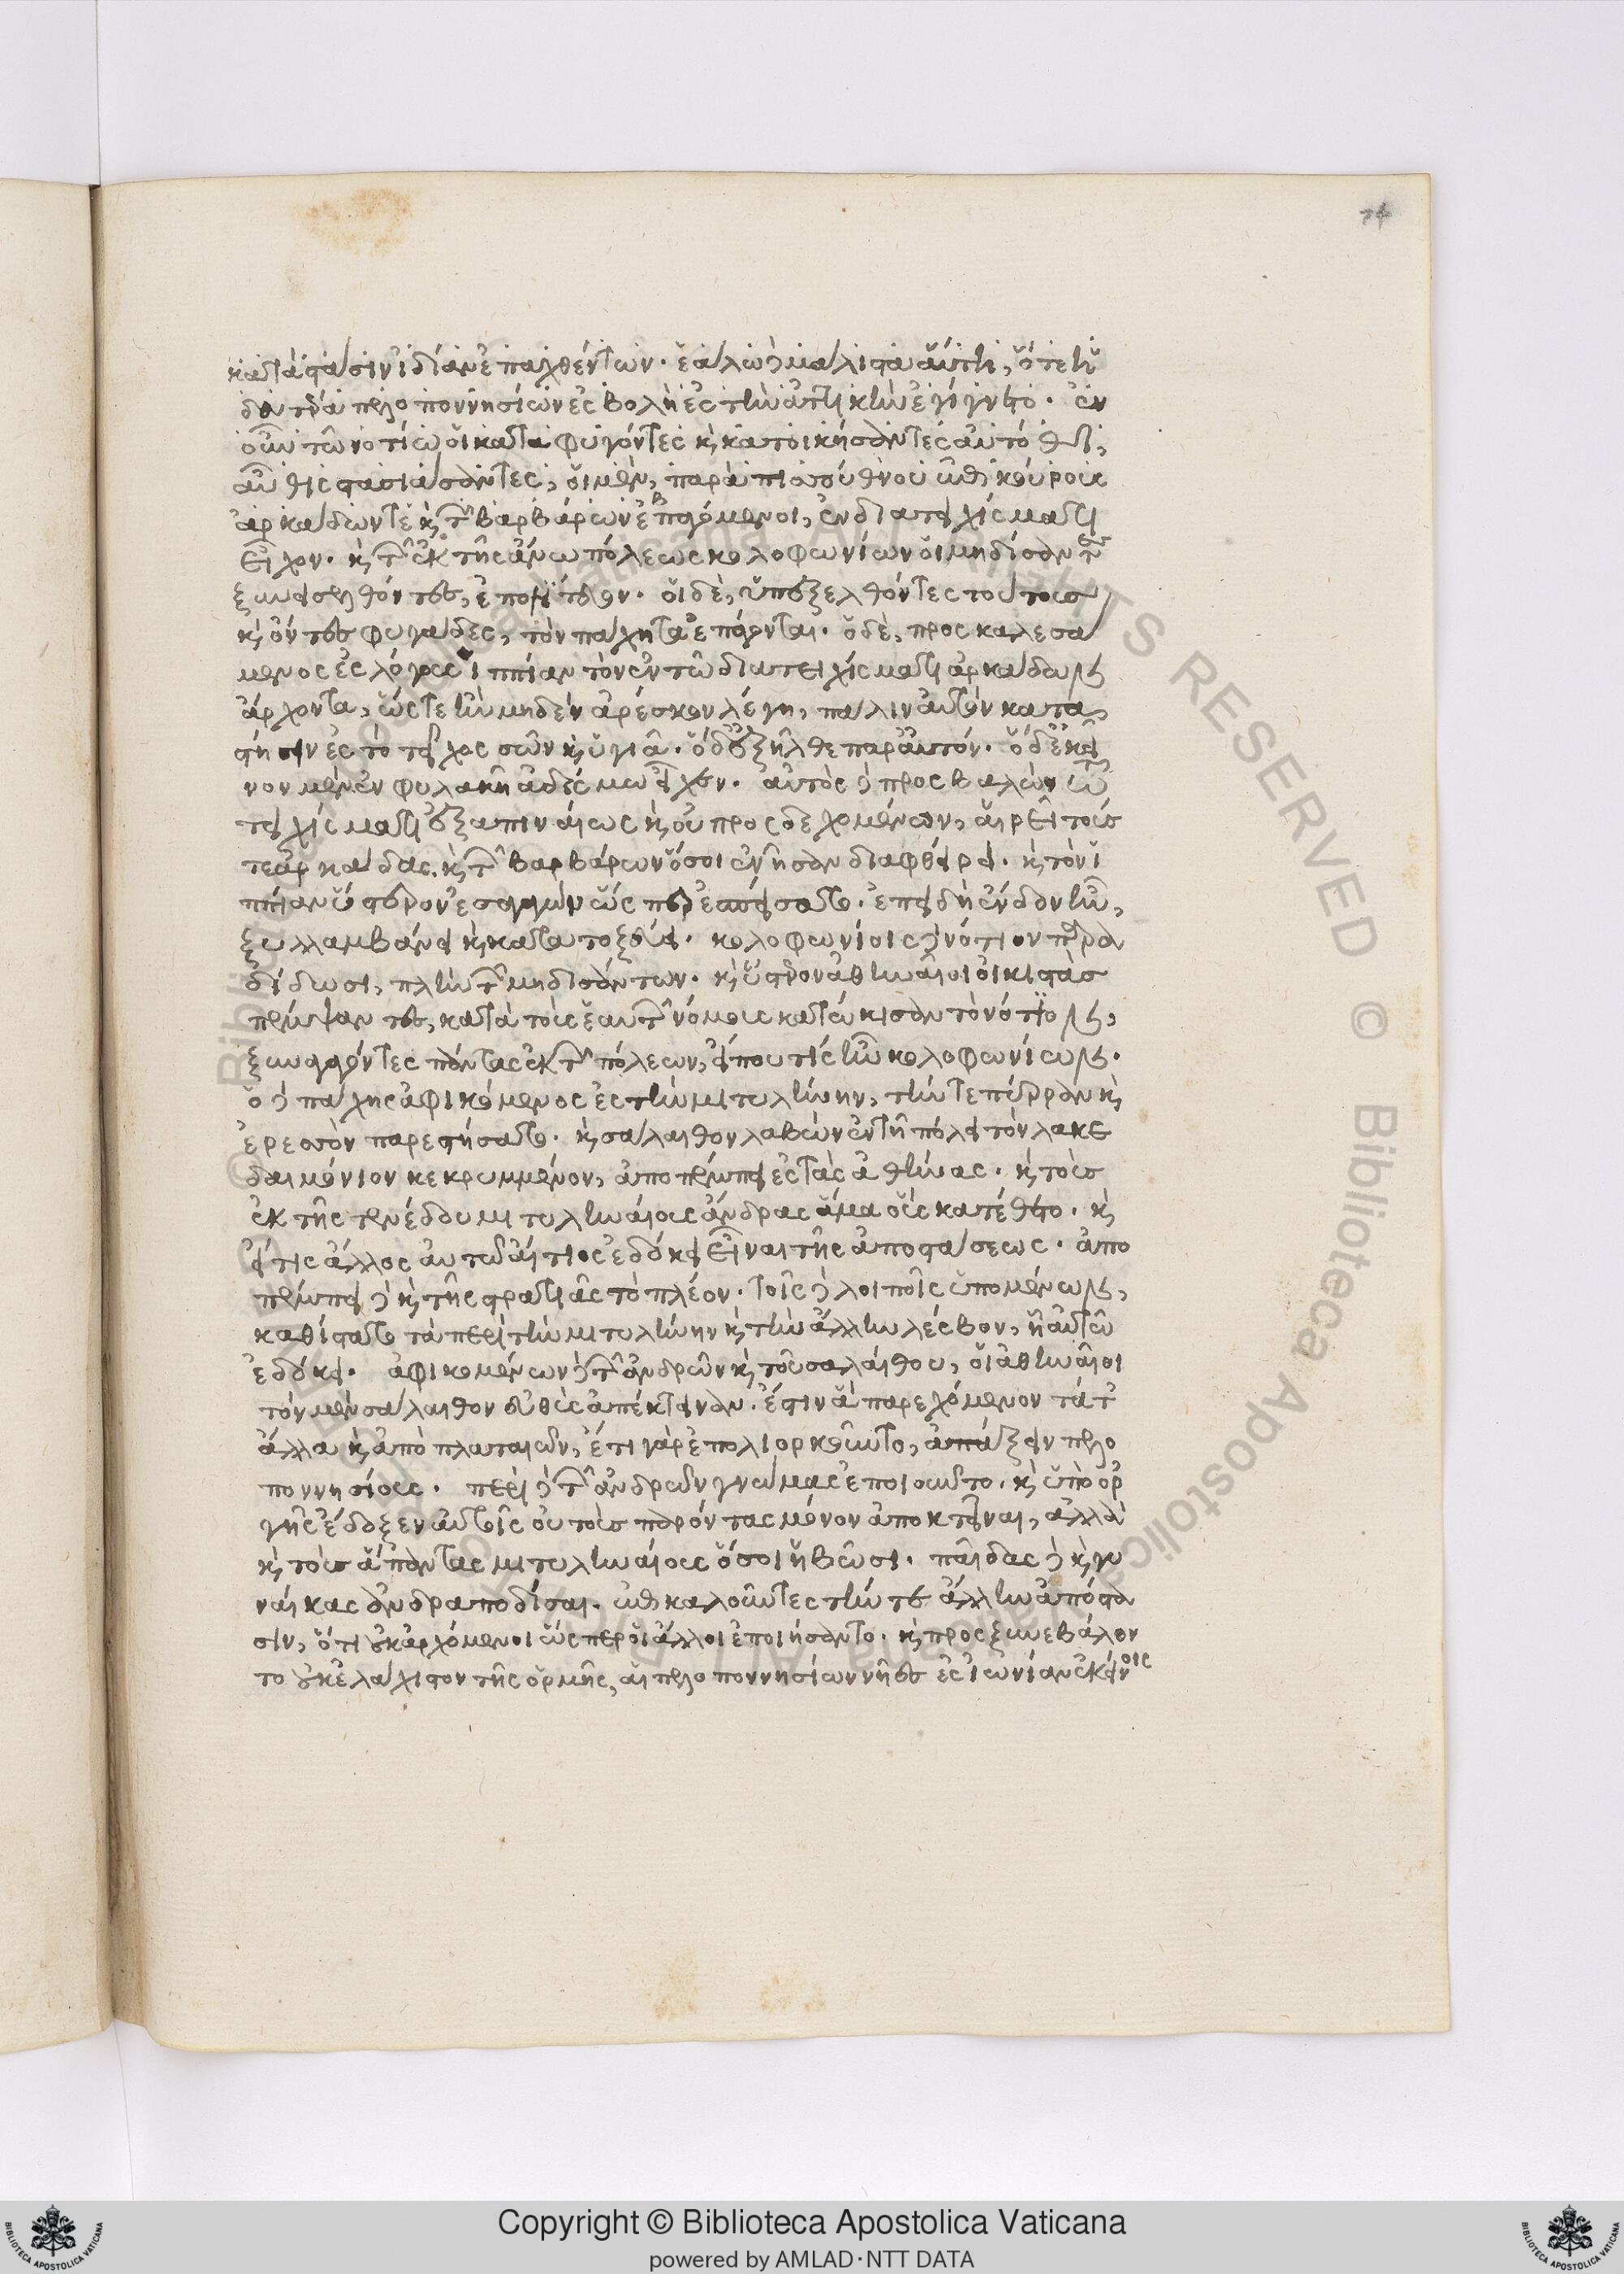 κατὰ στάσιν ἰδίαν ἐπαχθέντων. ἑάλω δὲ μάλιστα αὕτη, ὅτε ἡ
δευτέρα πελοποννησίων ἐσβολὴ ἐς τὴν ἀττικὴν ἐγίγνετο. ἐν
οὖν τῶ νοτίω οἱ καταφυγόντες καὶ κατοικήσαντες αὐτόθι,
αὖθις στασιάσαντες, οἱ μὲν, παρὰ πισσούθνου ἐπικούρους
ἀρκάδων τὲ καὶ τῶν βαρβάρων ἐπαγόμενοι, ἐν διατειχίσματι
εἶχον. καὶ τῶν ἐκ τῆς ἄνω πόλεως κολοφωνίων οἱ μηδίσαντες
ξυνεσελθόντες, ἐπολίτευον. οἱ δὲ, ὑπεξελθόντες τούτους
καὶ ὄντες φυγάδες, τὸν πάχητα ἐπάγονται. ὁ δὲ, προσκαλεσά
μενος ἐς λόγους ἱππίαν τὸν ἐν τῶ διατειχίσματι ἀρκάδων
ἄρχοντα, ὥστε ἢν μηδὲν ἀρέσκον λέγη, πάλιν αὐτὸν κατα
στήσειν ἐς τὸ τεῖχος σῶν καὶ ὑγιᾶ. ὁ δὲ ἐξῆλθε παρ αὐτόν. ὁ δ ἐκεῖ
νον μὲν ἐν φυλακῆ ἀδέσμω εἶχεν. αὐτὸς δὲ προσβαλὼν τῶ
τειχίσματι ἐξαπιναίως καὶ οὐ προσδεχομένων, αἱρεῖ τούς
τε ἀρκάδας καὶ τῶν βαρβάρων ὅσοι ἐνῆσαν διαφθείρει. καὶ τὸν ἱ
ππίαν ὕστερον ἐσαγαγὼν ὥσπερ ἐσπείσατο. ἐπειδὴ ἔνδον ἦν,
ξυλλαμβάνει καὶ κατατοξεύει. κολοφωνίοις δὲ νότιον παρα
δίδωσι, πλὴν τῶν μηδισάντων. καὶ ὕστερον ἀθηναῖοι οἰκιστὰς
πέμψαντες, κατὰ τοὺς ἑαυτῶν νόμους κατώκισαν τὸ νότιον,
ξυναγαγόντες πάντας ἐκ τῶν πόλεων, εἴπου τίς ἦν κολοφωνίων.
ὁ δὲ πάχης ἀφικόμενος ἐς τὴν μιτυλήνην, τήν τε πύρραν καὶ
ἔρεσον παρεστήσατο. καὶ σάλαιθον λαβὼν ἐν τῆ πόλει τὸν λακε
δαιμόνιον κεκρυμμένον, ἀποπέμπει ἐς τὰς ἀθήνας. καὶ τοὺς
ἐκ τῆς τενέδου μιτυληναίους ἄνδρας ἅμα οὓς κατέθετο. καὶ
εἴ τις ἄλλος αὐτῶ αἴτιος ἐδόκει εἶναι τῆς ἀποστάσεως. ἀπο
πέμπει δὲ καὶ τῆς στρατιᾶς τὸ πλέον. τοῖς δὲ λοιποῖς ὑπομένων,
καθίστατο τὰ περὶ τὴν μιτυλήνην καὶ τὴν ἄλλην λέσβον, ἧ αὐτῶ
ἐδόκει. ἀφικομένων δὲ τῶν ἀνδρῶν καὶ τοῦ σαλαίθου, οἱ ἀθηναῖοι
τὸν μὲν σάλαιθον εὐθὺς ἀπέκτειναν. ἔστιν ἃ παρεχόμενον τά τ
ἄλλα καὶ ἀπὸ πλαταιῶν, ἔτι γὰρ ἐπολιορκοῦντο, ἀπάξειν πελο
ποννησίους. περὶ δὲ τῶν ἀνδρῶν γνώμας ἐποιοῦντο. καὶ ὑπὸ ὀρ
γῆς ἔδοξεν αὐτοῖς οὐ τοὺς παρόντας μόνον ἀποκτεῖναι, ἀλλὰ
καὶ τοὺς ἅπαντας μιτυληναίους ὅσοι ἡβῶσι. παῖδας δὲ καὶ γυ
ναῖκας ἀνδραποδίσαι. ἐπικαλοῦντες τήν τε ἄλλην ἀπόστα
σιν, ὅτι οὐκ ἀρχόμενοι ὥσπερ οἱ ἄλλοι ἐποιήσαντο. καὶ προσξυνεβάλον
το οὐκ ἐλάχιστον τῆς ὁρμῆς, αἱ πελοποννησίων νῆες ἐς ἰωνίαν ἐκείνοις